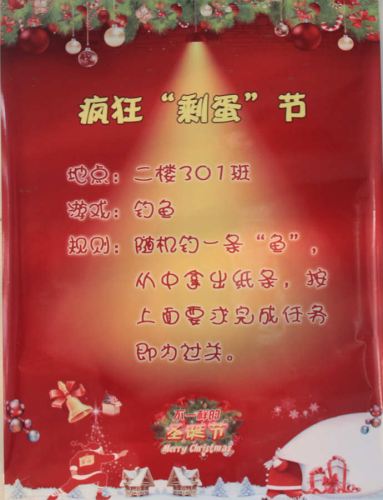 疯狂“剩蛋”节
地点：二楼301班
游戏：钓鱼
规则：随机钓一条“鱼”，
从中拿出纸条，按
上面要求完成任务
即为过关。
不一样的
圣诞节
Merry Christmas